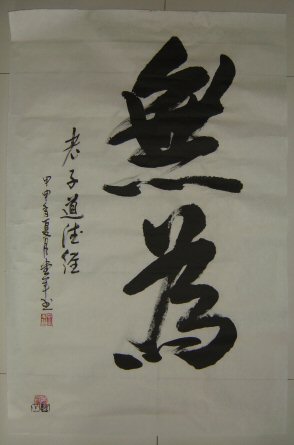 無為
老子道德經
甲申年夏月